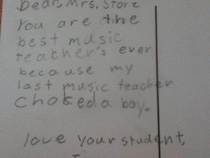 Dear, Mrs. Stark
You are the
best music
teacher's ever
because my
last music teacher
choked a boy.
love your student,